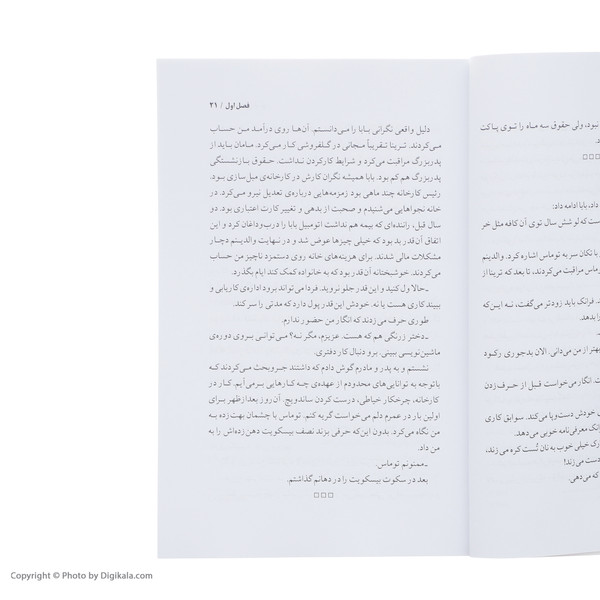 فصل اول / ۲۱
دلیل واقعی نگرانی بابا را می‌دانستم. آن‌ها روی درآمد من حساب
می‌کردند. ترینا تقریباً مجانی در گلفروشی کار می‌کرد. مامان باید از
پدربزرگ مراقبت می‌کرد و شرایط کارکردن نداشت. حقوق بازنشستگی
پدربزرگ هم کم بود. بابا همیشه نگران کارش در کارخانه‌ی مبل‌سازی بود.
رئیس کارخانه چند ماهی بود زمزمه‌هایی درباره‌ی تعدیل نیرو می‌کرد. در
خانه نجواهایی می‌شنیدم و صحبت از بدهی و تغییر کارت اعتباری بود. دو
سال قبل، راننده‌ای که بیمه هم نداشت اتومبیل بابا را درب‌وداغان کرد و این
اتفاق آن‌قدر بد بود که خیلی چیزها عوض شد و در نهایت والدینم دچار
مشکلات مالی شدند. برای هزینه‌های خانه روی دستمزد ناچیز من حساب
می‌کردند. خوشبختانه آن‌قدر بود که به خانواده کمک کند ایام بگذرد.
ـ حالا ول کنید و این‌قدر جلو نروید. فردا می‌تواند برود اداره‌ی کاریابی و
ببیند کاری هست یا نه. خودش این‌قدر پول دارد که مدتی را سر کند.
طوری حرف می‌زدند که انگار من حضور ندارم.
ـ دختر زرنگی هم که هست. عزیزم، مگر نه؟ می‌توانی بروی دوره‌ی
ماشین‌نویسی ببینی. برو دنبال کار دفتری.
نشستم و به پدر و مادرم گوش دادم که داشتند جروبحث می‌کردند که
باتوجه به توانایی‌های محدودم از عهده‌ی چه کارهایی برمی‌آیم. کار در
کارخانه، چرخکار خیاطی، درست کردن ساندویچ. آن روز بعدازظهر برای
اولین بار در عمرم دلم می‌خواست گریه کنم. توماس با چشمان بهت‌زده به
من نگاه می‌کرد. بدون این‌که حرفی بزند نصف بیسکویت دهن‌زده‌اش را به
من داد.
ـ ممنونم توماس.
بعد در سکوت بیسکویت را در دهانم گذاشتم.
بود، ولی حقوق سه ماه را توی پاکت
داد، بابا ادامه داد:
ست که لو شش سال توی آن کافه مثل خر
با تکان سر به توماس اشاره کرد. والدینم
ماس مراقبت می‌کردند، تا بعد که ترینا از
. فرانک باید زودتر می‌گفت، نه این‌که
را بدهد.
بهتر از من می‌دانی. الان بدجوری رکود
ت. انگار می‌خواست قبل از حرف زدن
ی خودش دست‌وپا می‌کند. سوابق کاری
انک معرفی‌نامه خوبی می‌دهد.
رک خیلی خوب به نان تُست کره می‌زند،
ست می‌زند!
که می‌دهی.
Copyright © Photo by Digikala.com